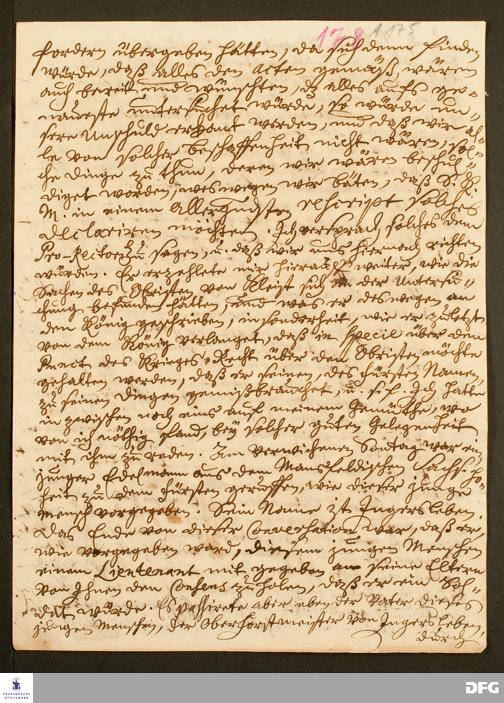 178 A 175
fordern übergeben hätten, da sich denn finden
würde, daß alles den Acten gemäß, wären
auch bereit und wünschten, daß alles aufs ge-
naueste untersuchet würde, so würde un-
sere Unschuld erkant werden, und daß wir al-
le von solcher beschaffenheit nicht wären, sol-
che dinge zu thun, deren wir wären beschul-
diget worden, weswegen wir bäten, daß S. K.
M. in einem Allergndsten rescript solches
declariren möchten. Ich versprach, solches dem
Pro-Rectori zu sagen, u. daß wir uns hiernach richten
würden. Er erzehlete mir hierauf weiter, wie die
Sachen des Obristen von Kleist sich in der Untersu-
chung befunden hätten, und was er deswegen an
den König geschrieben, insonderheit wie er zuletzt
von dem König verlanget, daß in specie über den
Punct des Krieges-Recht über den Obristen möchte
gehalten werden, daß er seinen des Fürsten Namen
zu seinen dingen gemißbrauchet, u. s. f. Ich hatte
inzwischen noch eins auf meinem Gemüthe, wo-
von ich nöthig fand, bey solcher guten Gelegenheit
mit ihm zu reden. Am verwichenen Sontag war ein
junger Edelmann aus dem Mansfeldischen Sächs. Ho-
heit zu dem Fürsten geruffen, wie dieser junge
Mensch vorgegeben. Sein Name ist Ingersleben.
Das Ende von dieser Conversation war, daß er,
wie vorgegeben ward, diesem jungen Menschen
einen Lieutenant mit gegeben an seine Eltern
von Ihnen den Consens zu holen, daß er ein Sol-
dat würde. Es passirete aber eben der Vater dieses
jungen Menschen, der Oberforstmeister von Ingersleben,
durch
FRANCKESCHE STIFTUNGEN
DFG